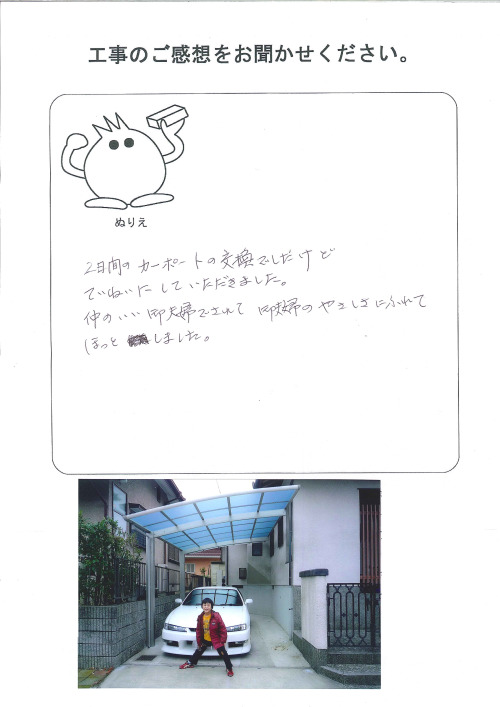 工事のご感想をお聞かせください。
ぬりえ
2日間のカーポートの交換でしたけど
ていねいにしていただきました。
仲のいい御夫婦でされて 御夫婦のやさしさにふれて
ほっと しました。